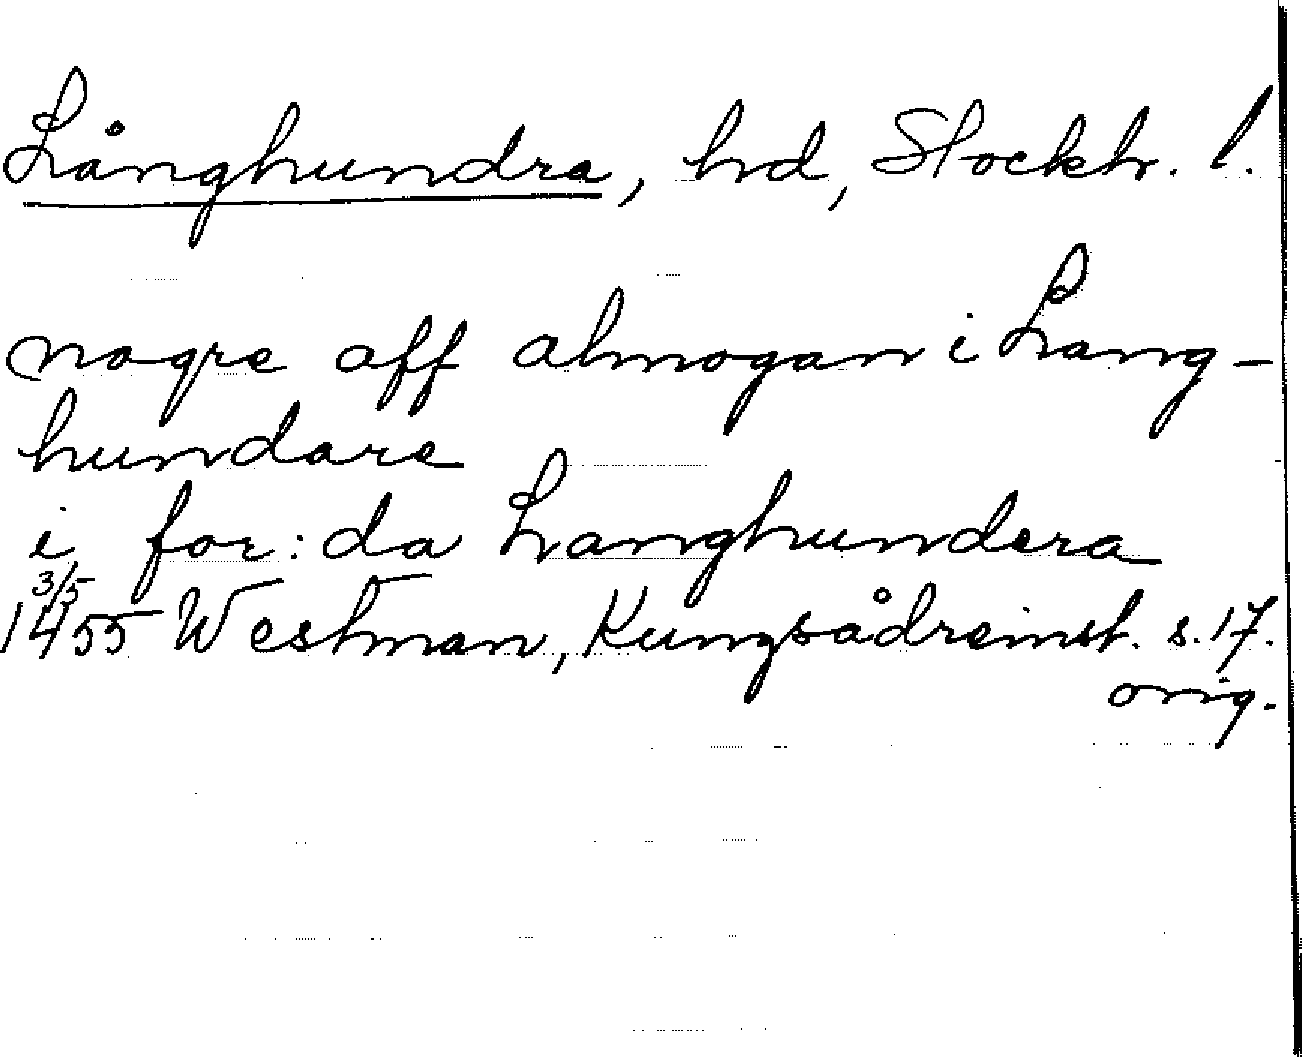 Långhundra, hd, Stockh. l.
nogre aff almogan i Lang-
hundare
i for: da Langhundera
3/5
1455 Westman, Kungsådreinst. s. 17.
orig.